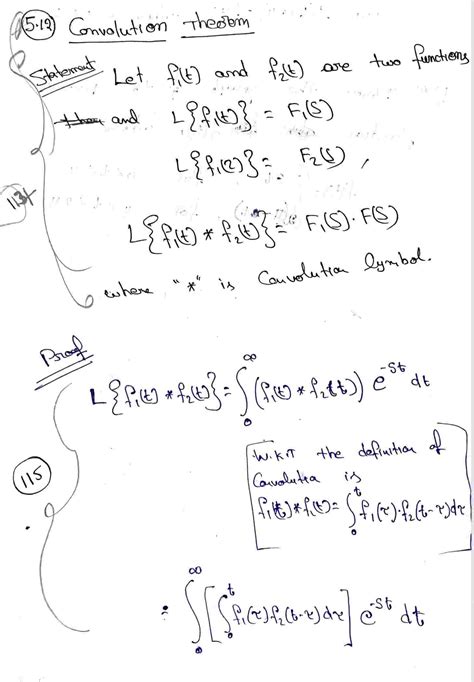 5.12 Convolution Theorem
Statement Let f₁(t) and f₂(t) are two functions
and L{f₁(t)} = F₁(S)
L{f₁(2)} = F₂(S),
113
L{f₁(t) * f₂(t)} = F₁(S).F(S)
where "*" is Convolution Symbol.
Proof
L{f₁(t) * f₂(t)} = ∫₀^∞ (f₁(t) * f₂(t)) e^-St dt
W.K.T the definition of
Convolution is
f₁(t) * f₂(t) = ∫₀^t f₁(τ).f₂(t-τ)dτ
115
= ∫₀^∞ [∫₀^t f₁(τ) f₂(t-τ) dτ] e^-St dt